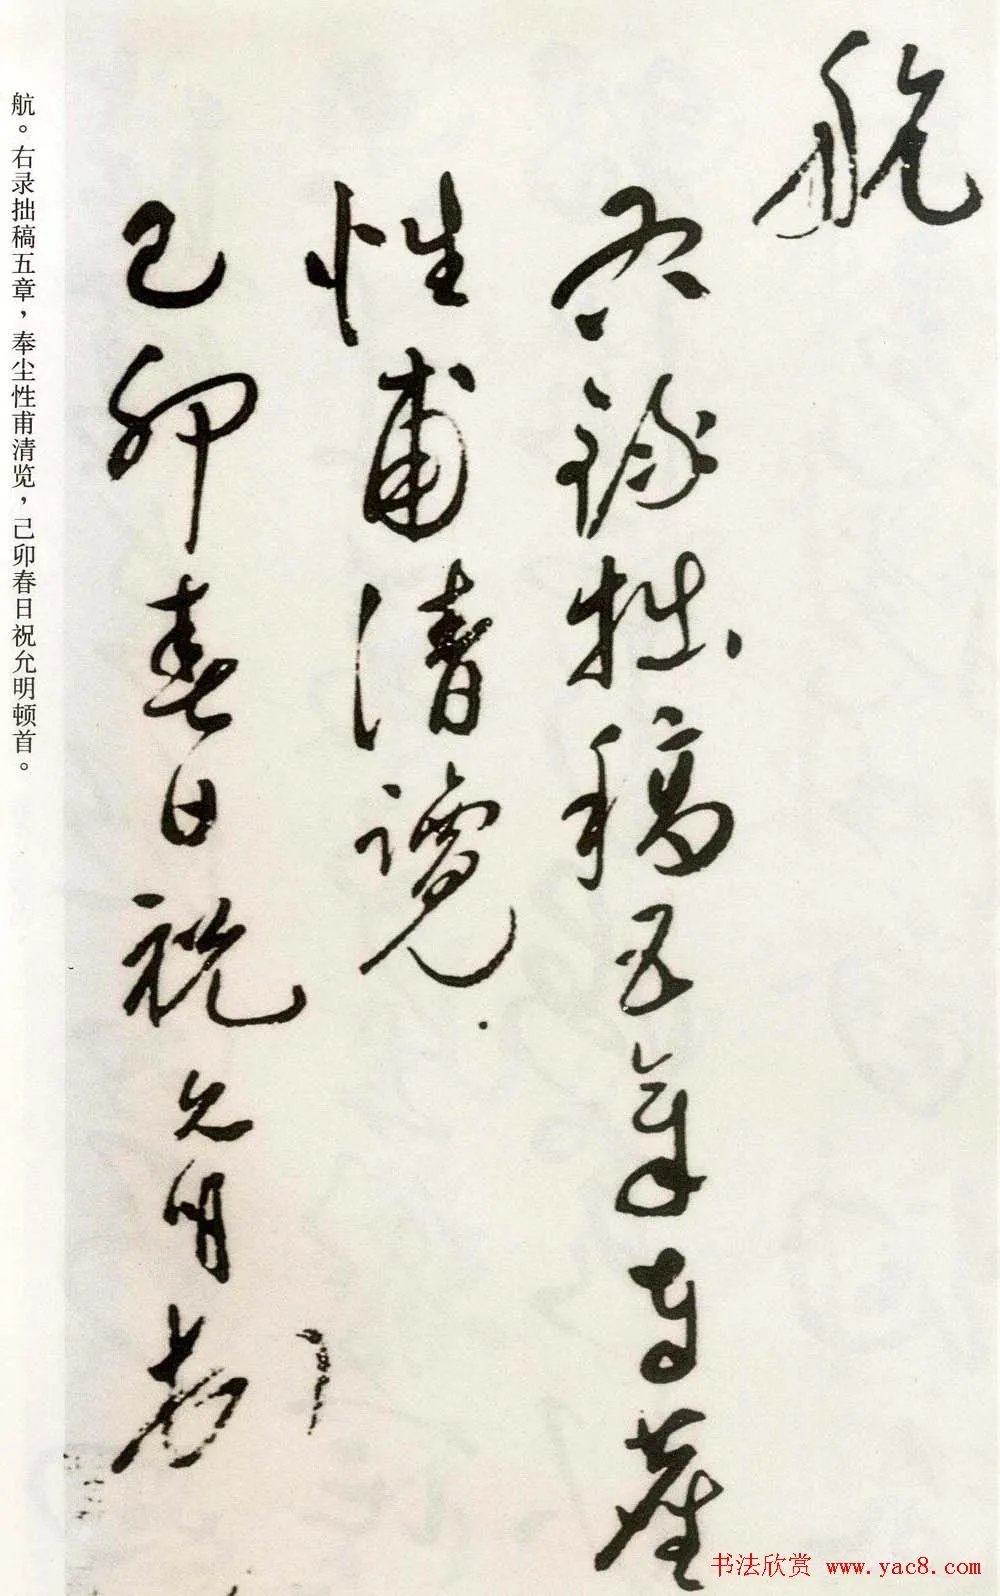 航
右录拙稿五章奉尘
性甫清览
己卯春日祝允明顿首
航。右录拙稿五章，奉尘性甫清览，己卯春日祝允明顿首。
书法欣赏 www.yac8.com